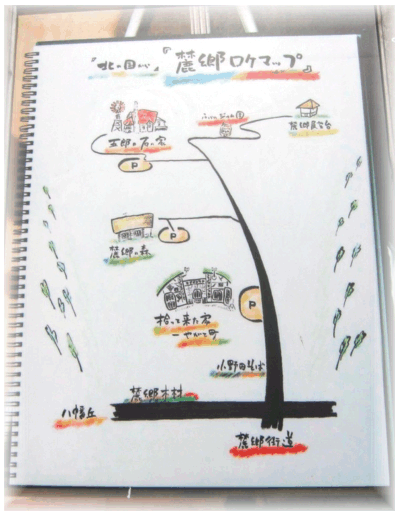 「北の国から」『麓郷ロケマップ』
ふらのジャム園
麓郷展望台
五郎の石の家
P
麓郷の森
P
P
拾って来た家
－やがて町
小野田そば
麓郷木材
八幡丘
麓郷街道